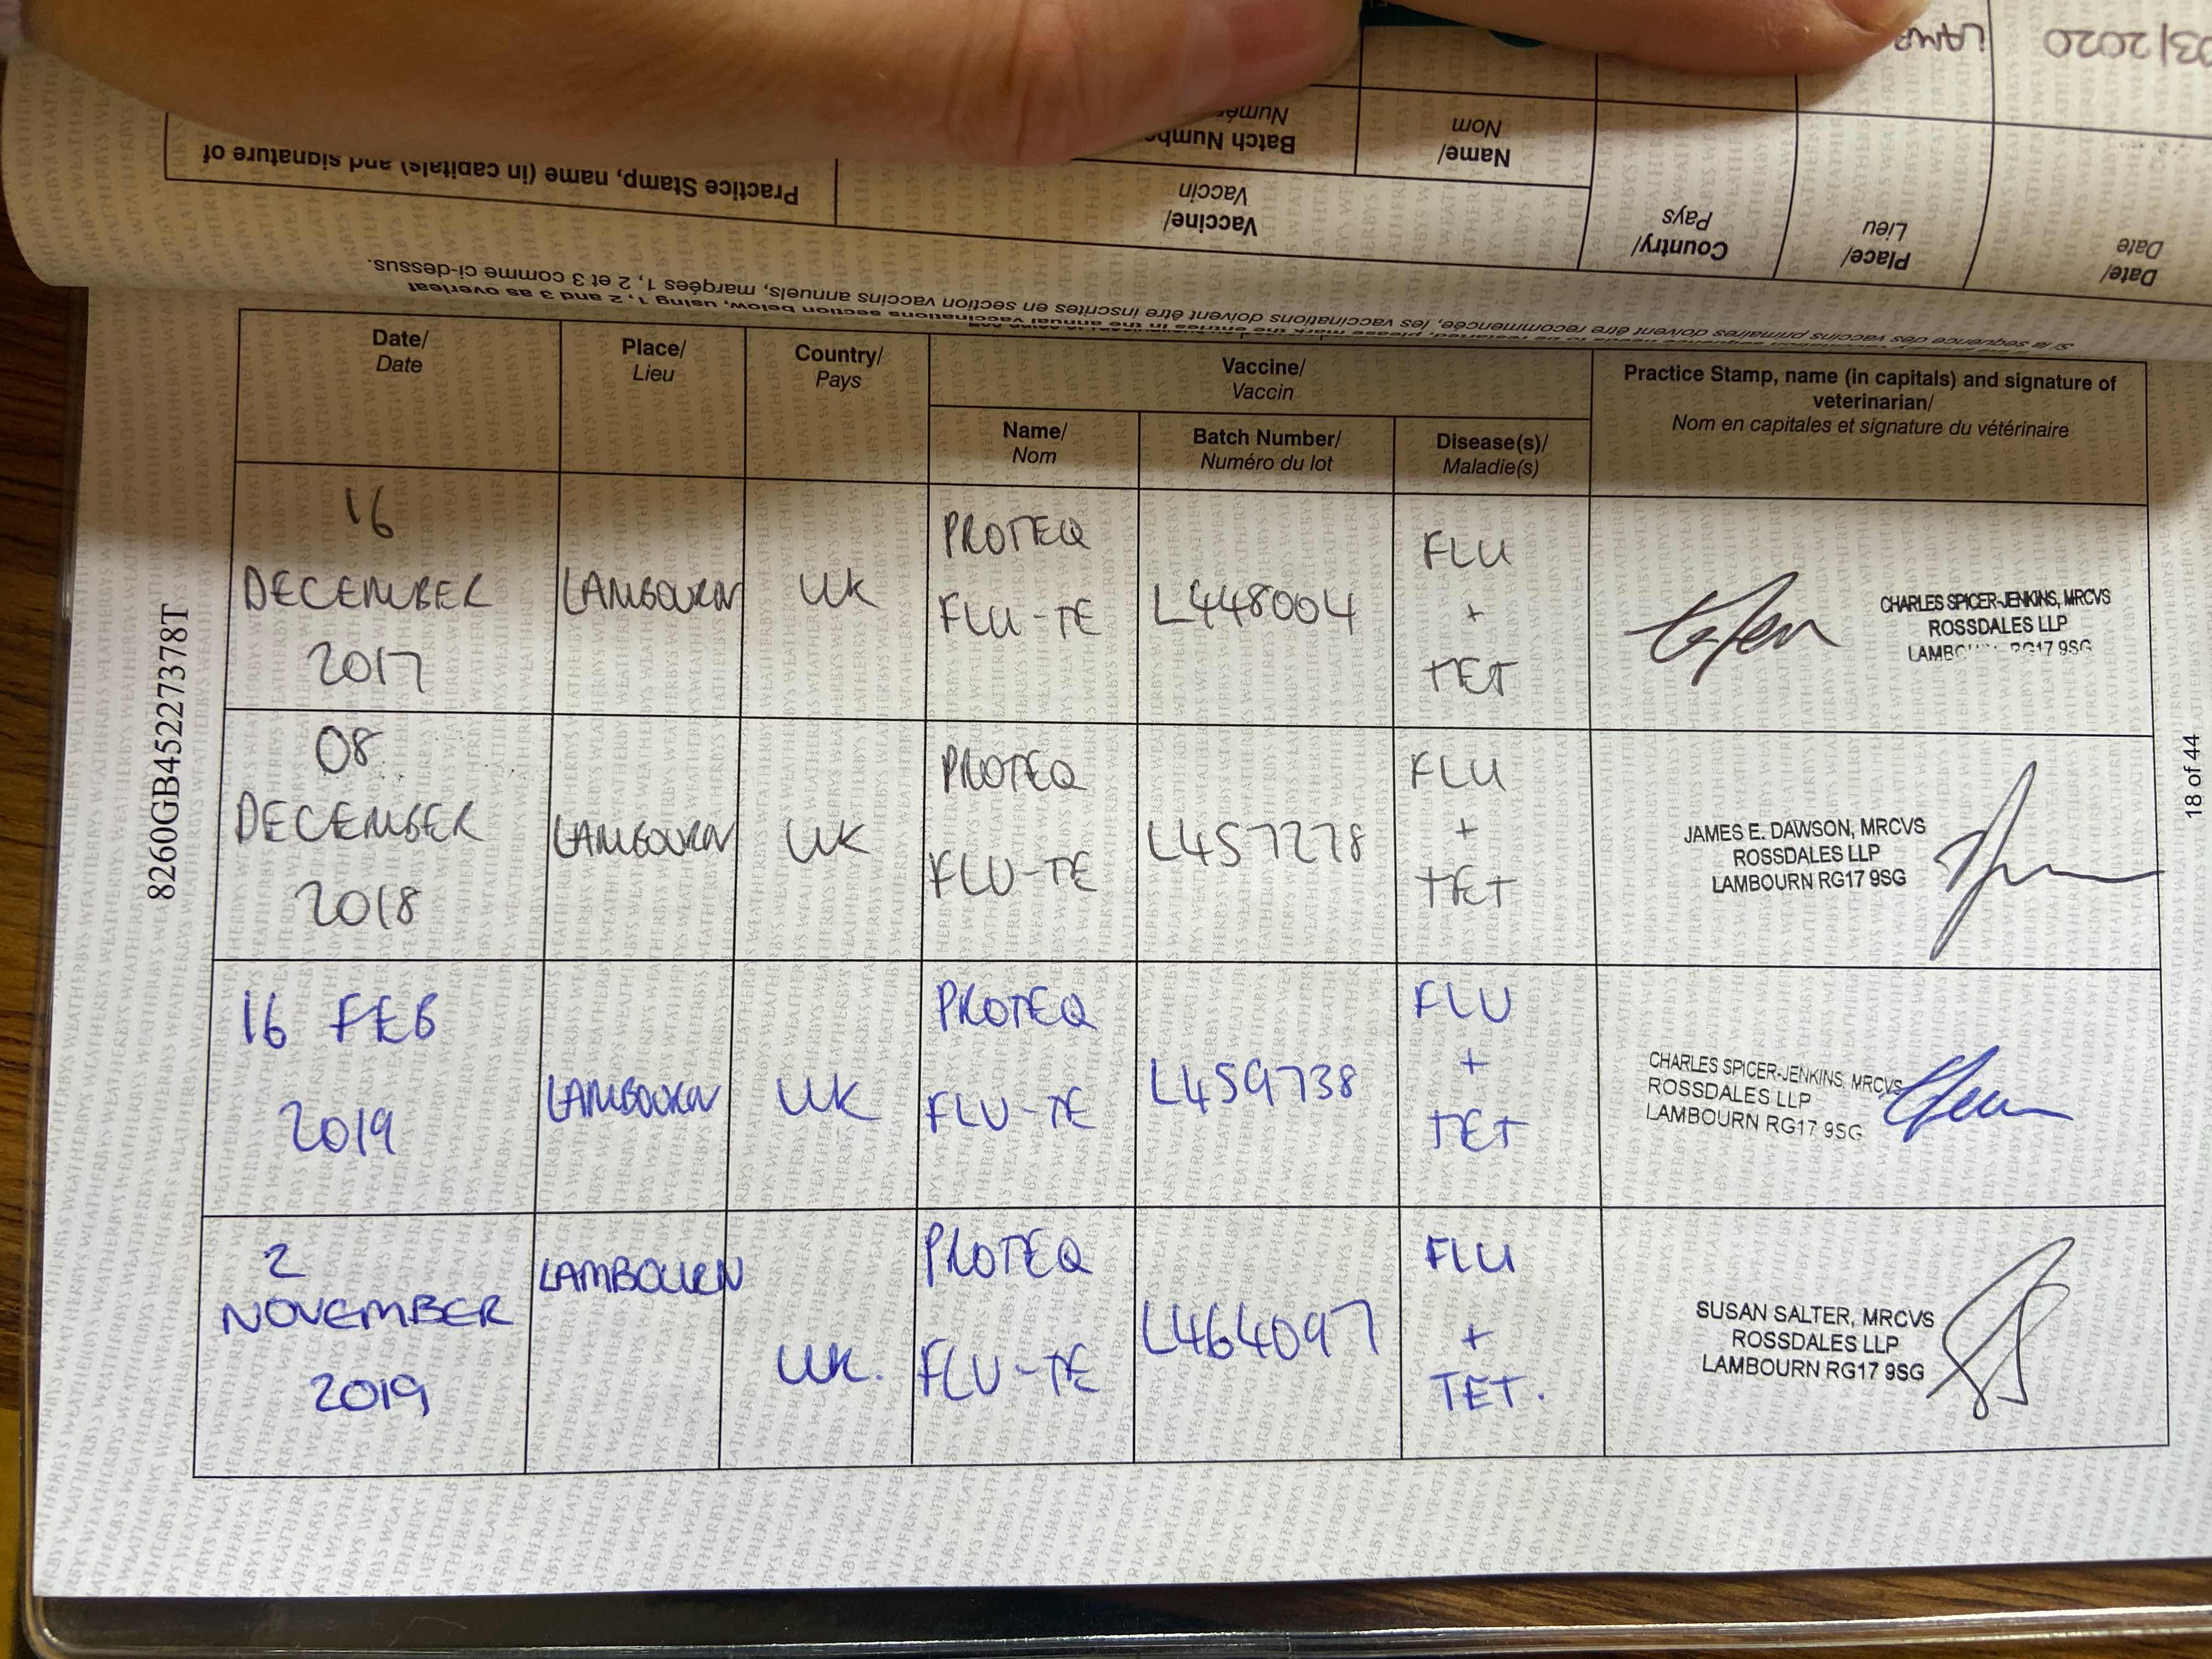 03/2020
LAMB
Date/
Date
Place/
Lieu
Country/
Pays
Vaccine/
Vaccin
Name/
Nom
Batch Number
Numéro
Practice Stamp, name (in capitals) and signature of
Si la séquence des vaccins primaires doivent être recommencée, les vaccinations doivent être inscrites en section vaccins annuels, marqées 1, 2 et 3 comme ci-dessus.
please mark the entries in the annual vaccinations section below, using 1, 2 and 3 as overleaf
8260GB45227378T
Date/
Date
Place/
Lieu
Country/
Pays
Vaccine/
Vaccin
Name/
Nom
Batch Number/
Numéro du lot
Disease(s)/
Maladie(s)
Practice Stamp, name (in capitals) and signature of
veterinarian/
Nom en capitales et signature du vétérinaire
16
DECEMBER
2017
LAMBOURN
UK
PROTEQ
FLU-TE
L448004
FLU
+
TET
CHARLES SPICER-JENKINS, MRCVS
ROSSDALES LLP
LAMBOURN RG17 9SG
08
DECEMBER
2018
LAMBOURN
UK
PROTEQ
FLU-TE
L457278
FLU
+
TET
JAMES E. DAWSON, MRCVS
ROSSDALES LLP
LAMBOURN RG17 9SG
16 FEB
2019
LAMBOURN
UK
PROTEQ
FLU-TE
L459738
FLU
+
TET
CHARLES SPICER-JENKINS, MRCVS
ROSSDALES LLP
LAMBOURN RG17 9SG
2
NOVEMBER
2019
LAMBOURN
UK.
PROTEQ
FLU-TE
L464097
FLU
+
TET.
SUSAN SALTER, MRCVS
ROSSDALES LLP
LAMBOURN RG17 9SG
18 of 44